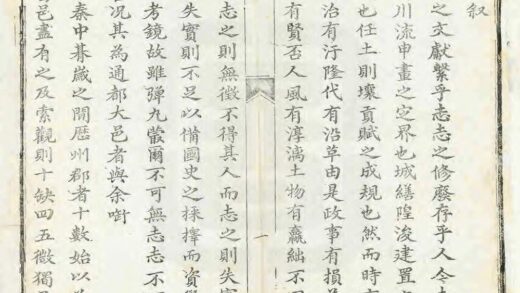 叙
之文獻繫乎志志之修廢存乎人今
川流申畫之定界也城繕隍浚建置
也任土則壤貢賦之成規也然而時
治有汙隆代有沿革由是政事有損
有賢否人風有淳漓土物有贏絀不
志之則無徵不得其人而志之則失實
失實則不足以備國史之採擇而資
考鏡故雖彈丸蕞爾不可無志志不
况其為通都大邑者與余
秦中朞歲之間歷州郡者十數始以
邑盡有之及索觀則十缺四五徵獨